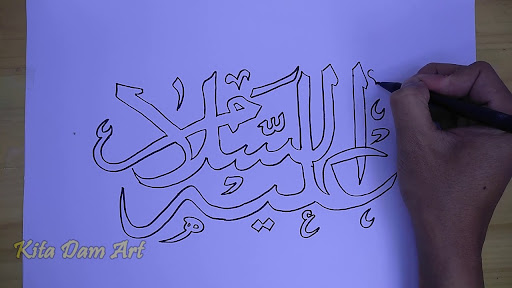 عليه السلام
Kita Dam Art